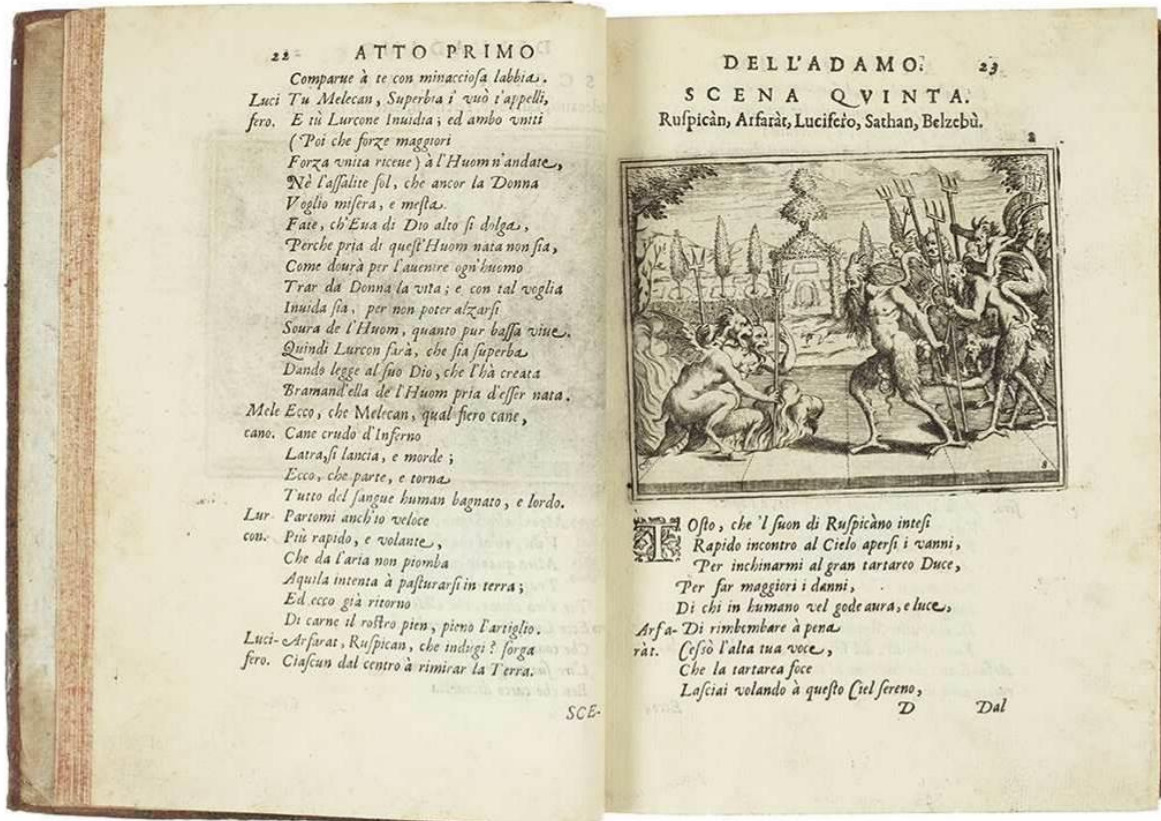 22 ATTO PRIMO
Comparue à te con minacciosa labbia.
Luci Tu Melecan, Superbia i' vuò t'appelli,
fero. E tù Lurcone Inuidia; ed ambo vniti
(Poi che forze maggiori
Forza vnita riceue) à l'Huom n'andate,
Nè l'assalite sol, che ancor la Donna
Voglio misera, e mesta.
Fate, ch'Eua di Dio alto si dolga,
Perche pria di quest'Huom nata non sia,
Come dourà per l'auenire ogn'huomo
Trar da Donna la vita; e con tal voglia
Inuida sia, per non poter alzarsi
Soura de l'Huom, quanto pur bassa viue.
Quindi Lurcon farà, che sia superba
Dando legge al suo Dio, che l'hà creata
Bramand'ella de l'Huom pria d'esser nata.
Mele Ecco, che Melecan, qual fiero cane,
cano. Cane crudo d'Inferno
Latra, si lancia, e morde;
Ecco, che parte, e torna
Tutto del sangue human bagnato, e lordo.
Lur- Partomi anch'io veloce
con. Più rapido, e volante,
Che da l'aria non piomba
Aquila intenta à pasturarsi in terra;
Ed ecco già ritorno
Di carne il rostro pien, pieno l'artiglio.
Luci- Arfarat, Ruspican, che indugi? sorga
fero. Ciascun dal centro à rimirar la Terra.
SCE-
DELL'ADAMO. 23
SCENA QVINTA.
Ruspicàn, Arfaràt, Lucifero, Sathan, Belzebù.
8
TOsto, che 'l suon di Ruspicàno intesi
Rapido incontro al Cielo apersi i vanni,
Per inchinarmi al gran tartareo Duce,
Per far maggiori i danni,
Di chi in humano vel gode aura, e luce,
Arfa- Di rimbembare à pena
ràt. Cessò l'alta tua voce,
Che la tartarea foce
Lasciai volando à questo Ciel sereno,
D Dal